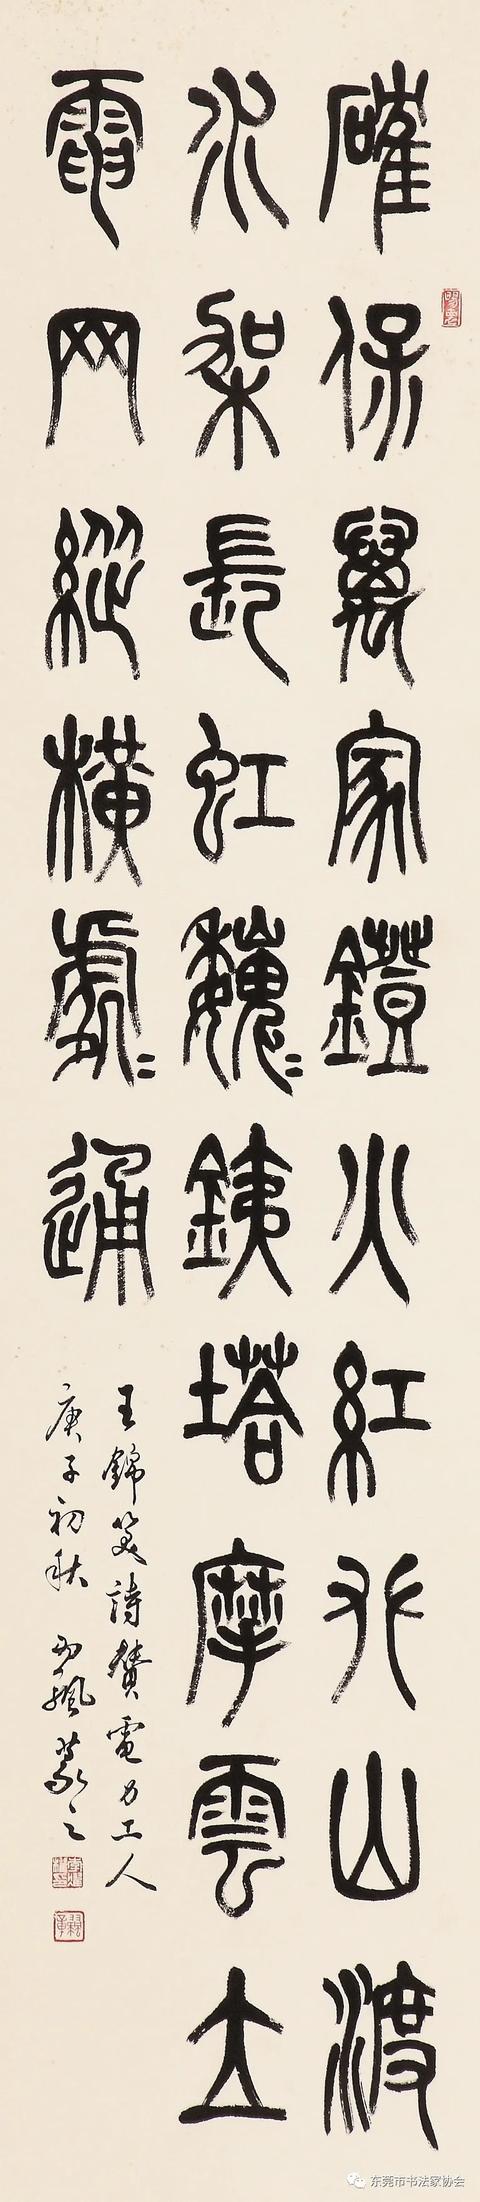 確保萬家鐙火紅行山渡
水架長虹巍〻鐵塔摩雲立
電网縱橫處〻通
王錦芙詩贊電力工人
庚子初秋 篆之
东莞市书法家协会